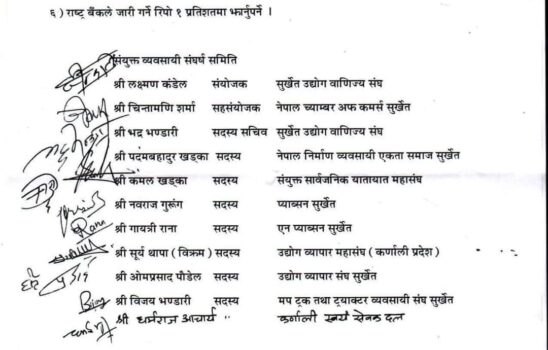 ६ ) राष्ट्र बैंकले जारी गर्ने रिपो १ प्रतिशतमा झार्नुपर्ने ।
संयुक्त व्यवसायी संघर्ष समिति
श्री लक्ष्मण कंडेल संयोजक सुर्खेत उद्योग वाणिज्य संघ
श्री चिन्तामणि शर्मा सहसंयोजक नेपाल च्याम्बर अफ कमर्स सुर्खेत
श्री भद्र भण्डारी सदस्य सचिव सुर्खेत उद्योग वाणिज्य संघ
श्री पदमबहादुर खड्का सदस्य नेपाल निर्माण व्यवसायी एकता समाज सुर्खेत
श्री कमल खड्का सदस्य संयुक्त सार्वजनिक यातायात महासंघ
श्री नवराज गुरूंग सदस्य प्याब्सन सुर्खेत
Rana श्री गायत्री राना सदस्य एन प्याब्सन सुर्खेत
श्री सूर्य थापा ( विक्रम ) सदस्य उद्योग व्यापार महासंघ ( कर्णाली प्रदेश )
श्री ओमप्रसाद पौडेल सदस्य उद्योग व्यापार संघ सुर्खेत
श्री विजय भण्डारी सदस्य मप ट्रक तथा ट्रयाक्टर व्यवसायी संघ सुर्खेत
श्री धर्मराज आचार्य " कर्णाली स्वयं सेवक दल